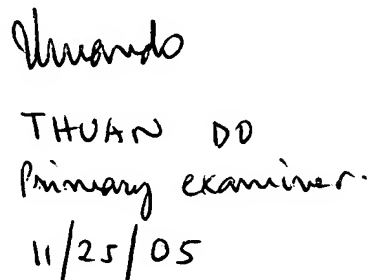 Thuando
THUAN DO
Primary examiner.
11/25/05